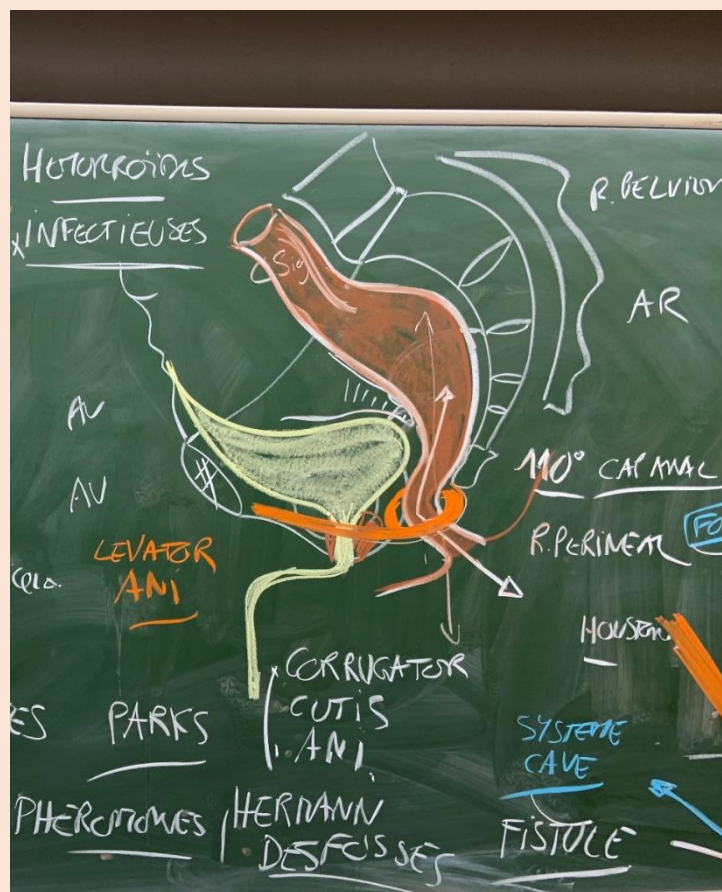 HEMORROÏDES
INFECTIEUSES
Sig
R. PELVIEN
AR
AV
AV
110° CAP ANAL
R. PERINEAL
LEVATOR
ANI
CORRUGATOR
CUTIS
ANI
PARKS
SYSTEME
CAVE
PHEROMONES
HERMANN
DESFOSSES
FISTULE